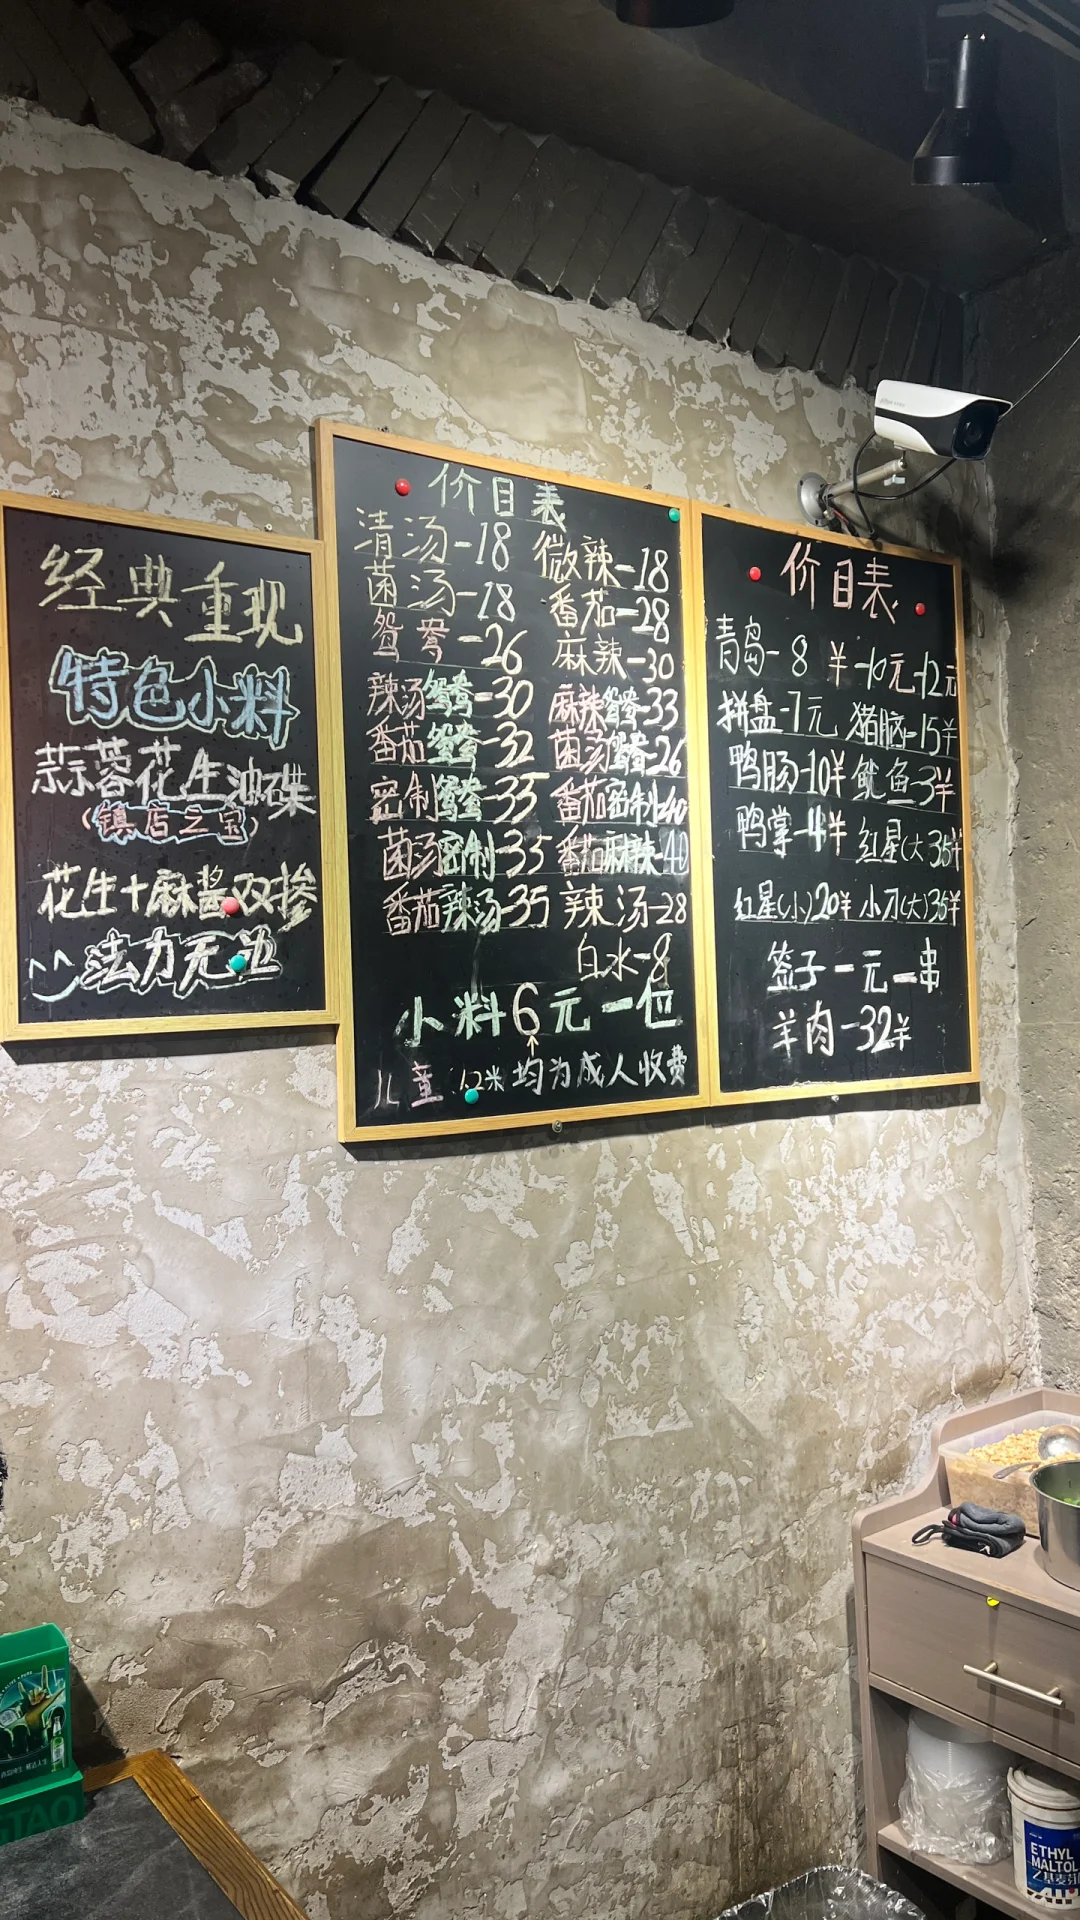 经典重现
特色小料
蒜蓉花生油碟
(镇店之宝)
花生+麻酱双掺
法力无边
价目表
清汤-18 微辣-18
菌汤-18 番茄-28
鸳鸯-26 麻辣-30
辣汤鸳鸯-30 麻辣鸳鸯-33
番茄鸳鸯-32 菌汤鸳鸯-26
密制鸳鸯-35 番茄密制-40
菌汤密制-35 番茄麻辣-40
番茄辣汤-35 辣汤-28
白水-8
小料6元一位
儿童 1.2米↑均为成人收费
价目表
青岛-8羊-10元-12元
拼盘-7元 猪脑-15羊
鸭肠-10羊 鱿鱼-3羊
鸭掌-4羊 红星(大)35羊
红星(小)20羊 小刀(大)35羊
签子一元一串
羊肉-32羊
ETHYL
MALTOL
乙基麦芽